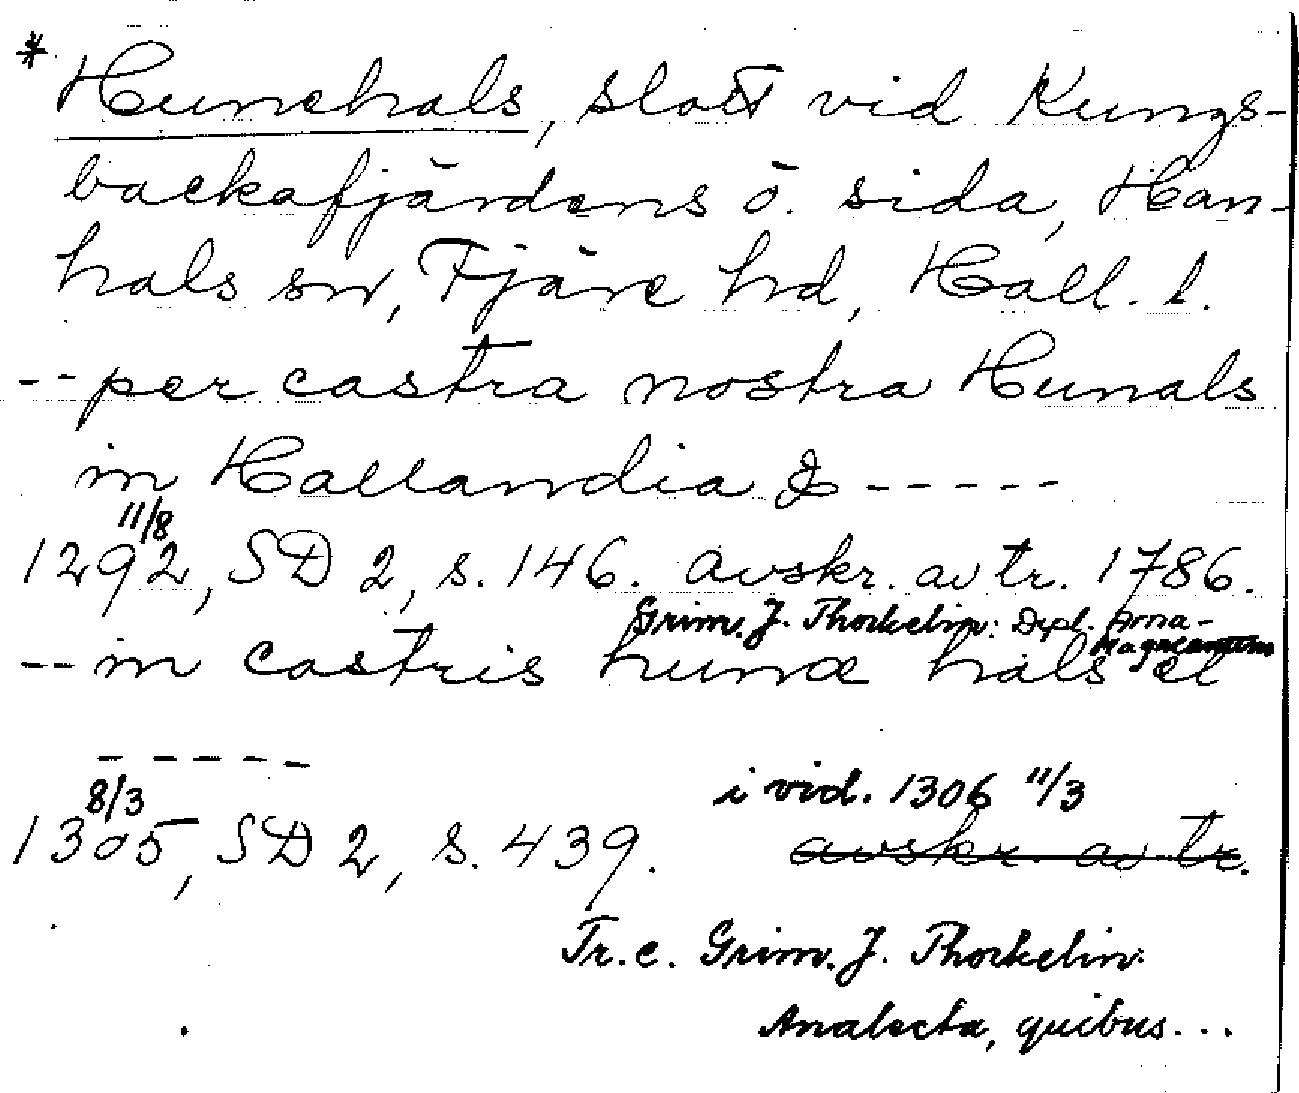 * Hunehals, slott vid Kungs-
backafjärdens ö. sida, Han-
hals sn, Fjäre hd, Hall. l.
-- per castra nostra Hunals
in Hallandia & -----
11/8
1292, SD 2, s. 146. avskr. av tr. 1786.
Grim. J. Thorkelin: Dipl. Arna-
Magnæanum
-- in castris hunæ hals et
-----
8/3 i vid. 1306 11/3
1305, SD 2, s. 439. avskr. av tr.
Tr. e. Grim. J. Thorkelin:
Analecta, quibus...